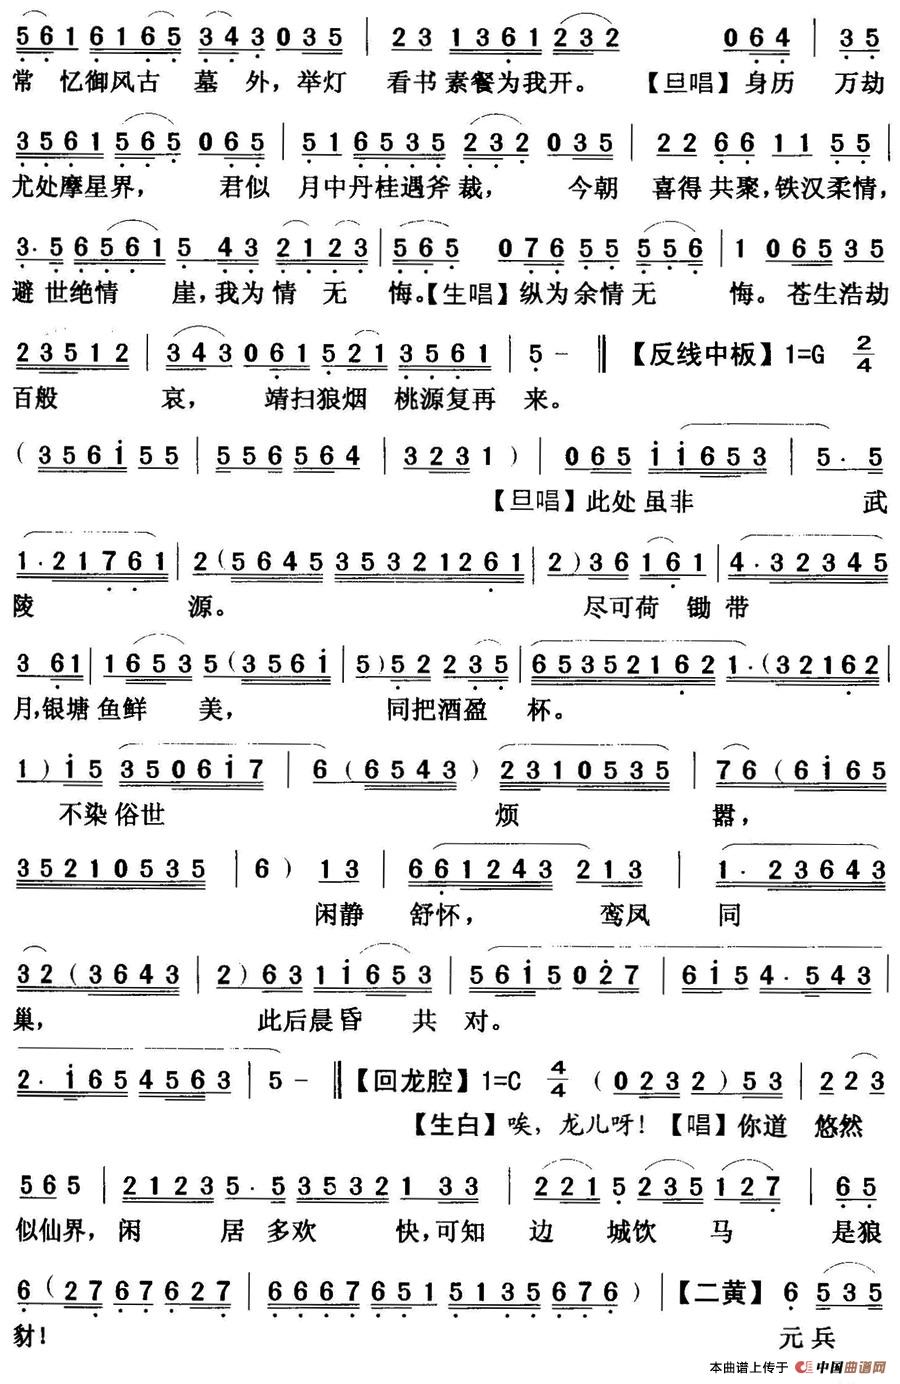 5 6 1 6 1 6 5 3 4 3 0 3 5 | 2 3 1 3 6 1 2 3 2 0 6 4 | 3 5
常 忆御风古 墓 外，举灯 看书 素餐为我开。 【旦唱】身历 万劫
3 5 6 1 5 6 5 0 6 5 | 5 1 6 5 3 5 2 3 2 0 3 5 | 2 2 6 6 1 1 5 5 |
尤处摩星界， 君似 月中丹桂遇斧 裁， 今朝 喜得 共聚，铁汉柔情，
3· 5 6 5 6 1 5 4 3 2 1 2 3 | 5 6 5 0 7 6 5 5 5 5 6 | 1 0 6 5 3 5
避 世绝情 崖，我为 情 无 悔。【生唱】纵为 余情 无 悔。苍生浩劫
2 3 5 1 2 | 3 4 3 0 6 1 5 2 1 3 5 6 1 | 5 – ‖ 【反线中板】1=G 2/4
百般 哀， 靖扫狼烟 桃源复再 来。
（3 5 6 i 5 5 | 5 5 6 5 6 4 | 3 2 3 1 ）| 0 6 5 i i 6 5 3 | 5· 5
【旦唱】此处 虽非 武
1· 2 1 7 6 1 | 2（5 6 4 5 3 5 3 2 1 2 6 1 | 2）3 6 1 6 1 | 4· 3 2 3 4 5
陵 源。 尽可荷 锄 带
3 6 1 | 1 6 5 3 5（3 5 6 i | 5）5 2 2 3 5 | 6 5 3 5 2 1 6 2 1·（3 2 1 6 2 |
月，银塘 鱼鲜 美， 同把酒盈 杯。
1）i 5 3 5 0 6 i 7 | 6（6 5 4 3 ）2 3 1 0 5 3 5 | 7 6（6 i 6 5
不染 俗世 烦 嚣，
3 5 2 1 0 5 3 5 | 6 ）1 3 | 6 6 1 2 4 3 2 1 3 | 1· 2 3 6 4 3
闲静 舒怀， 鸾凤 同
3 2（3 6 4 3 | 2）6 3 1 i 6 5 3 | 5 6 i 5 0 2 7 | 6 i 5 4· 5 4 3 |
巢， 此后晨昏 共 对。
2· i 6 5 4 5 6 3 | 5 – ‖【回龙腔】1=C 4/4 （0 2 3 2 ）5 3 | 2 2 3
【生白】唉，龙儿呀！【唱】你道 悠然
5 6 5 | 2 1 2 3 5· 5 3 5 3 2 1 3 3 | 2 2 1 5 2 3 5 1 2 7 | 6 5
似仙界，闲 居 多欢 快，可知 边 城饮 马 是狼
6（2 7 6 7 6 2 7 | 6 6 6 7 6 5 1 5 1 3 5 6 7 6 ）|【二黄】6 5 3 5
豺！ 元 兵
本曲谱上传于 中国曲谱网